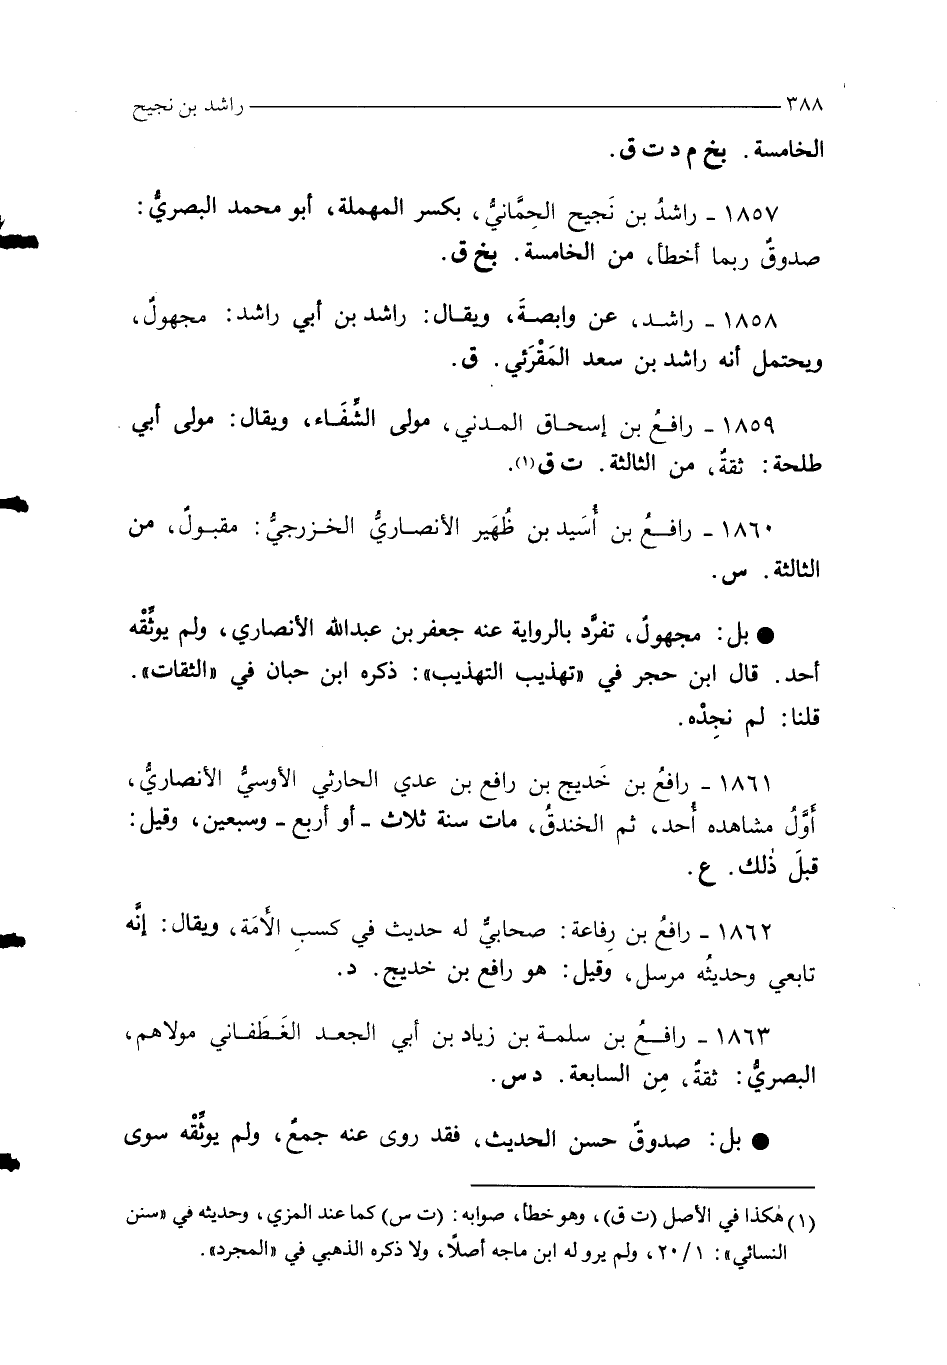 ٣٨٨ راشد بن نجيح
الخامسة. بخ م د ت ق.
١٨٥٧ - راشدُ بن نَجيح الحِمَّانيُّ، بكسر المهملة، أبو محمد البصريُّ:
صدوقٌ ربما أخطأ، من الخامسة. بخ ق.
١٨٥٨ - راشد، عن وابصةَ، ويقال: راشد بن أبي راشد: مجهولٌ،
ويحتمل أنه راشد بن سعد المَقْرَئي. ق.
١٨٥٩ - رافعُ بن إسحاق المدني، مولى الشِّفَاء، ويقال: مولى أبي
طلحة: ثقةٌ، من الثالثة. ت ق(١).
١٨٦٠ - رافعُ بن أُسَيد بن ظُهَير الأنصاريُّ الخزرجيُّ: مقبولٌ، من
الثالثة. س.
● بل: مجهولٌ، تفرَّد بالرواية عنه جعفر بن عبدالله الأنصاري، ولم يوثِّقْه
أحد. قال ابن حجر في «تهذيب التهذيب»: ذكره ابن حبان في «الثقات».
قلنا: لم نجِدْه.
١٨٦١ - رافعُ بن خَديج بن رافع بن عدي الحارثي الأوسيُّ الأنصاريُّ،
أَوَّلُ مشاهده أُحد، ثم الخندقُ، مات سنة ثلاث - أو أربع - وسبعين، وقيل:
قبلَ ذٰلك. ع.
١٨٦٢ - رافعُ بن رِفاعة: صحابيٌّ له حديث في كسبِ الأَمَة، ويقال: إنَّه
تابعي وحديثُه مرسل، وقيل: هو رافع بن خديج. د.
١٨٦٣ - رافعُ بن سلمة بن زياد بن أبي الجعد الغَطَفاني مولاهم،
البصريُّ: ثقةٌ، مِن السابعة. د س.
● بل: صدوقٌ حسن الحديث، فقد روى عنه جمعٌ، ولم يوثِّقْه سوى
(١) هٰكذا في الأصل (ت ق)، وهو خطأ، صوابه: (ت س) كما عند المزي، وحديثه في «سنن
النسائي»: ١/ ٢٠، ولم يرو له ابن ماجه أصلًا، ولا ذكره الذهبي في «المجرد».